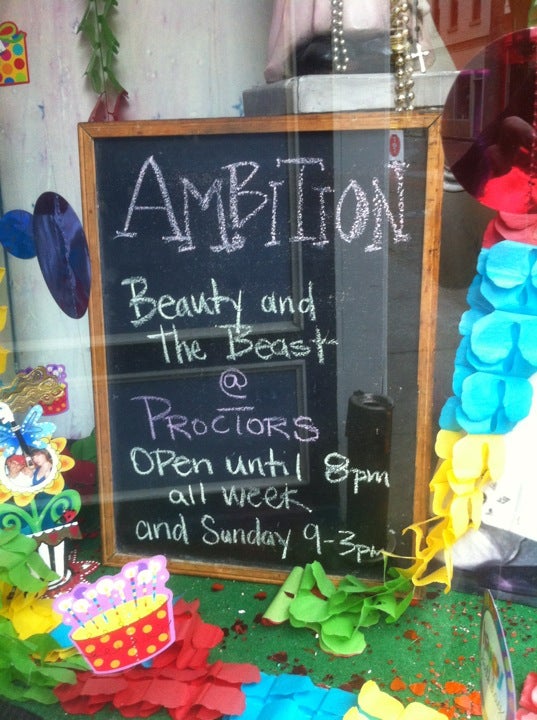 AMBITION
Beauty and
The Beast
@
PROCTORS
OPEN until 8pm
all week
and Sunday 9-3pm